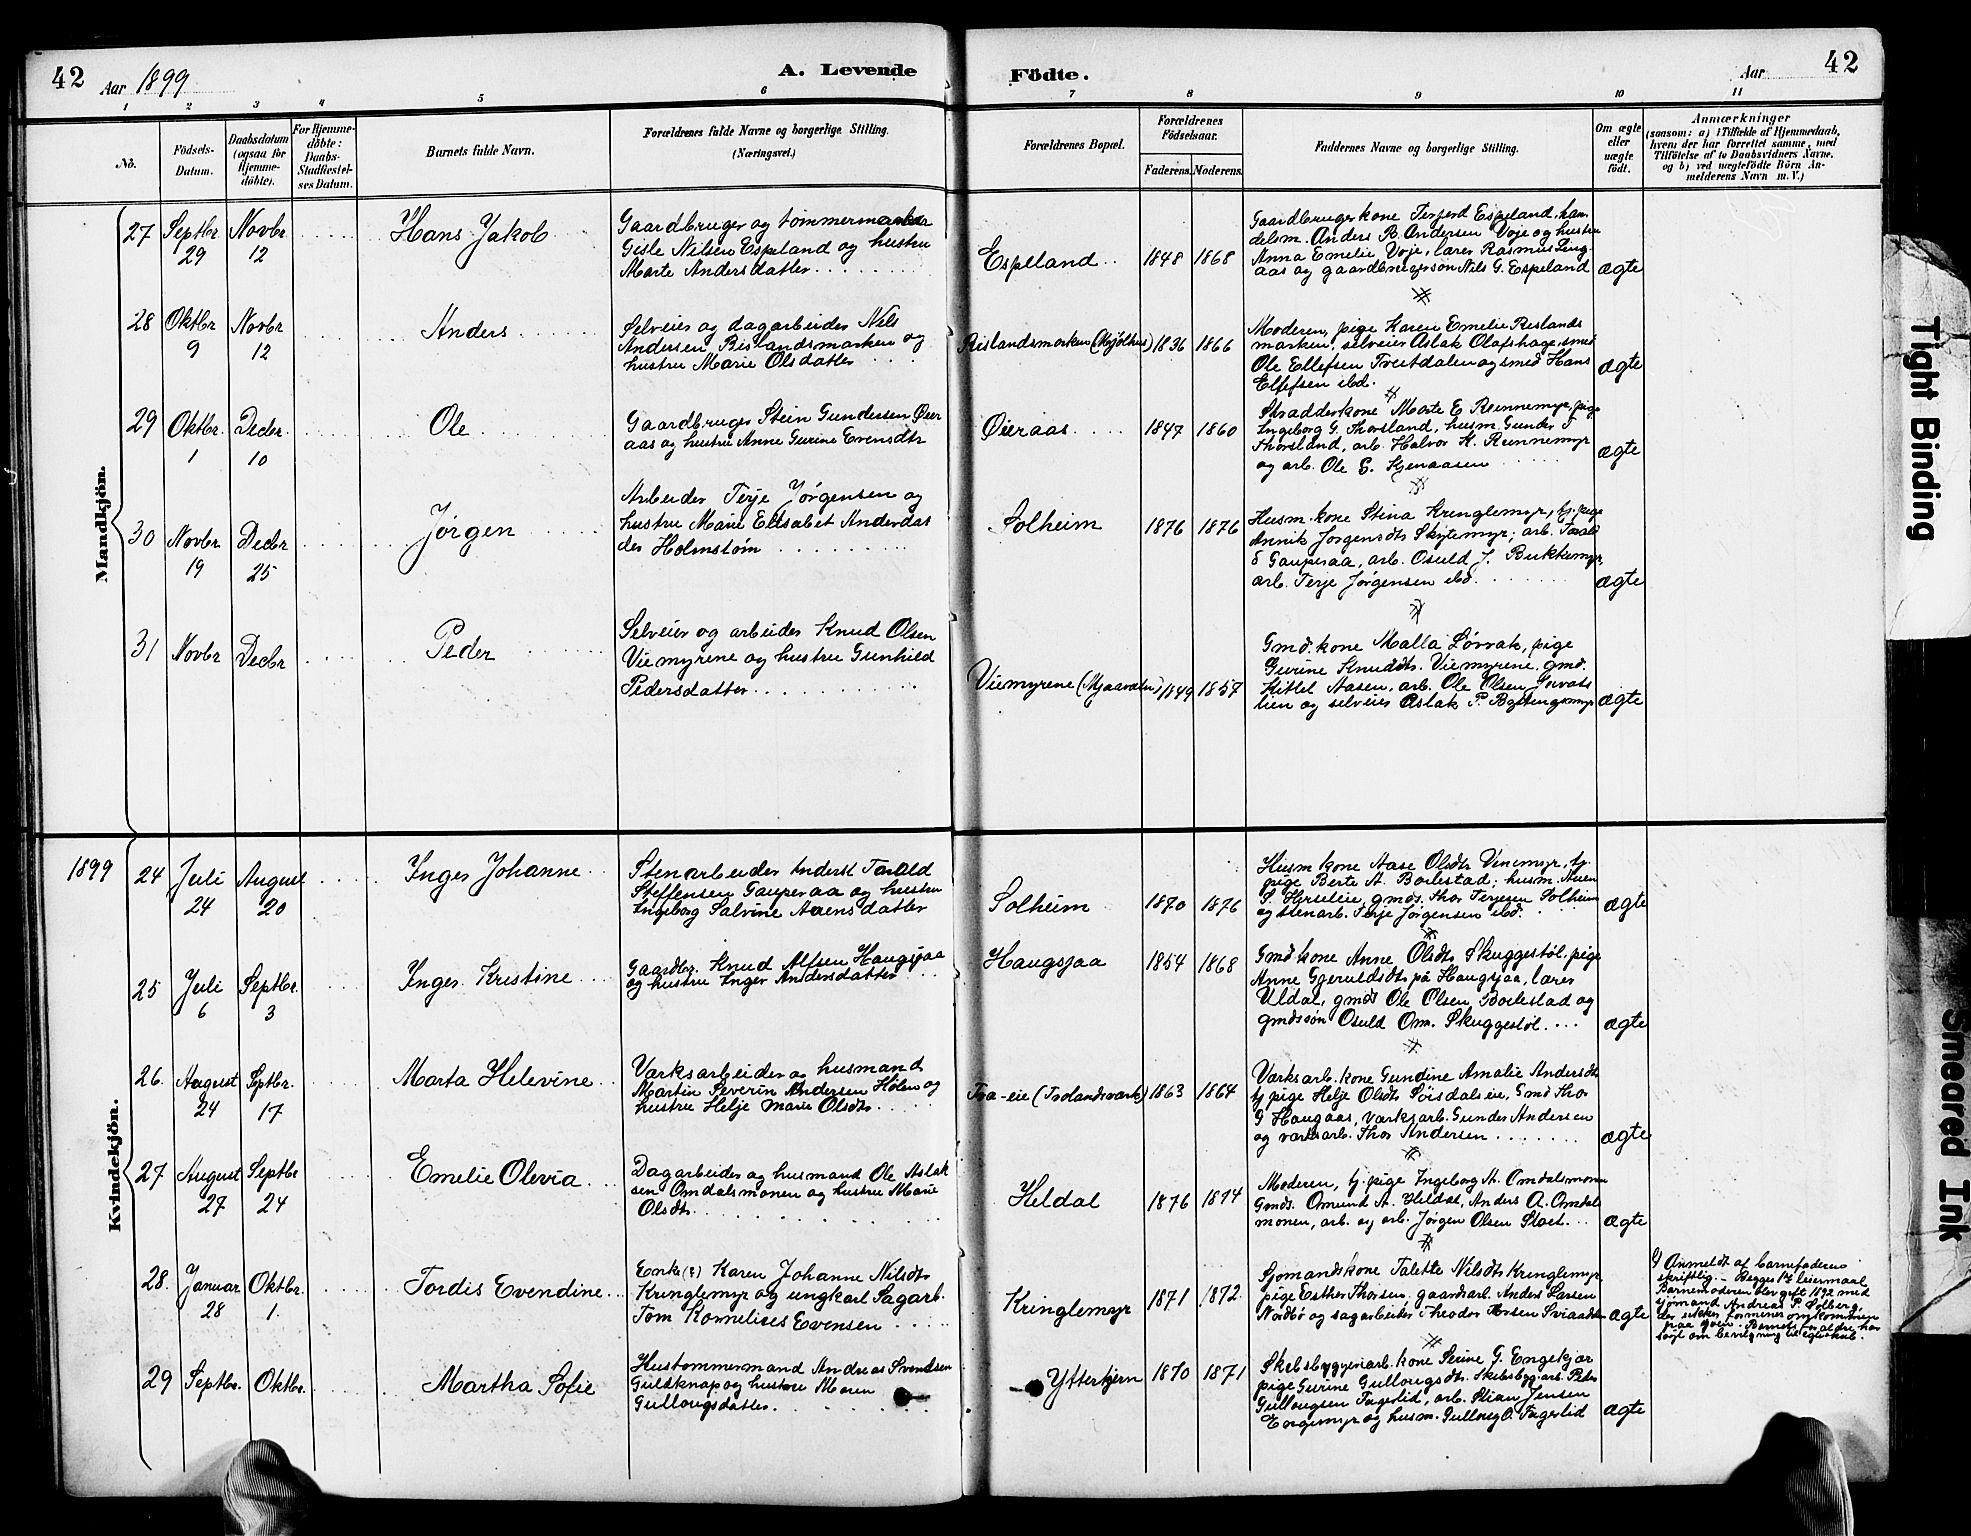 42 Aar 1899 A. Levende Födte. Aar 42
1 2 3 4 5 6 7 8 9 10 11
No.
Födsels-
Datum.
Daabsdatum
(ogsaa for
Hjemme-
döbte).
For Hjemme-
döbte:
Daabs-
Stadfæstel-
ses Datum.
Barnets fulde Navn.
Forældrenes fulde Navne og borgerlige Stilling.
(Næringsvei.)
Forældrenes Bopæl.
Forældrenes
Födselsaar.
Faderens. Moderens.
Faddernes Navne og borgerlige Stilling.
Om ægte
eller
uægte
födt.
Anmærkninger
(saasom: a) i Tilfælde af Hjemmedaab,
hvem der har forrettet samme, med
Tilföielse af to Daabsvidners Navne,
og b) ved uægtefödte Börn An-
melderens Navn m. V.)
Mandkjön.
27 Septbr 29 Novbr 12 Hans Jakob
Gaardbruger og tømmermand
Gisle Nilsen Espeland og hustru
Marte Andersdatter
Espeland 1848 1868
Gaardbrugerkone Terjerd Espeland, han
delsm. Anders R. Andersen Voje og hustru
Anna Emelie Voje, lærer Rasmus Ling
aas og gaardbrugersøn Nils G. Espeland
ægte
28 Oktbr 9 Novbr 12 Anders
Selveier og dagarbeider Nils
Andersen Rislandsmarken og
hustru Marie Olsdatter
Rislandsmarken (Mjølhus) 1836 1866
Moderen, pige Karen Emelie Rislands
marken, selveier Aslak Olafshage, smed
Ole Ellefsen Tveitdalen og smed Hans
Ellefsen ibd.
ægte
29 Oktbr. 1 Decbr. 10 Ole
Gaardbruger Stein Gundersen Øier
aas og hustru Anne Gurine Evensdtr
Øieraas 1847 1860
Skradderkone Marte E. Rennemyr, pige
Ingeborg G. Thorsland, husm. Gunder T
Thorsland, arb. Halvor K. Rennemyr
og arb. Ole G. Kjenaasen
ægte
30 Novbr 19 Decbr 25 Jørgen
Arbeider Terje Jørgensen og
hustru Marie Elisabet Anderdat
der Holmstøm
Solheim 1876 1876
Husm. kone Stina Kringlemyr, tj. pige
Annik Jorgensdtr Skytemyr; arb. Tarald
S Gauperaa, arb. Osuld J. Bukkemyr,
arb. Terje Jørgensen ibd.
ægte
31 Novbr Decbr Peder
Selveier og arbeider Knud Olsen
Viemyrene og hustru Gunhild
Pedersdatter
Viemyrene (Mjaavatn) 1849 1857
Gmd. kone Malla Lørvak, pige
Gurine Knudsdtr. Viemyrene, gmd.
Kittel Aasen, arb. Ole Olsen
lien og selveier Aslak P.
ægte
Kvindekjön.
1899 24 Juli 24 August 20 Inger Johanne
Stenarbeider Anders Tarald
Steffensen Gauperaa og hustru
Ingeborg Salvine Aanensdatter
Solheim 1870 1876
Husm kone Aase Olsdtr Vinemyr, tj.
pige Berte A. Borlestad; husm. Aanen
S. gmds. Thor Terjesen Solheim
og stenarb. Terje Jørgensen ibd.
ægte
25 Juli 6 Septbr. 3 Inger Kristine
Gaardbr. Knud Alfsen Haugsjaa
og hustru Inger Andersdatter
Haugsjaa 1854 1868
Gmd kone Anne Olsdtr Skuggestøl, pige
Anne Gjeruldsdtr på Haugsjaa, lærer
Uldal, gmds Ole Olsen Borlestad og
gmdssøn Osuld Om. Skuggestøl
ægte
26. August 24 Septbr. 17 Marta Helevine
Værksarbeider og husmand
Martin Severin Andersen Holm og
hustru Helje Marie Olsdtr
Fra-eie (Frolandsværk) 1863 1864
Værksarb. kone Gundine Amalie Andersdtr
tj pige Helje Olsdtr Sørsdalseie, Gmd Thor
G Haugaas, værksarb. Gunder Andersen
og værksarb. Thor Andersen
ægte
27 August 27 Septbr 24 Emelie Olevia
Dagarbeider og husmand Ole Aslak
sen Omdalsmonen og hustru Marie
Olsdtr
Heldal 1876 1874
Moderen, tj. pige Ingeborg A. Omdalsmonen
Gmds. Omund A. Heldal, Anders A. Omdals
monen, arb. og arb. Jørgen Olsen
ægte
28. Januar 28 Oktbr. 1. Tordis Evendine
Enke (?) Karen Johanne Nilsdtr
Kringlemyr og ungkarl Sagarb.
Tom Kornelius Evensen
Kringlemyr 1871 1872
Sjømandskone Talette Nilsdtr Kringlemyr,
pige Esther Thorsen, gaardarb. Anders Larsen
Nordbø og sagarbeider Theodor Iversen
ægte
Anmeldt af barnefaderen
skriftlig. – Begges 1ste leiermaal
Barnemoderen blev gift 1892 med
sjømand Andreas P. Solberg
der sikker formenes omkommen
paa sjøen. Barnets forældre har
søgt om bevilgning til egteskab.
29 Septbr. Oktbr. Martha Sofie
Hustømmermand Andreas Svendsen
Guldknap og hustru Maren
Gullougsdatter
Ytterkjern 1870 1871
Skibsbyggeriarb. kone Serine G. Engekjær
pige Gurine Gullougsdtr. Skibsbygarb. Peter
Gullougsen Fagerlid, arb. Stian Jensen
Engemyr og husm. Gulloug O. Fagerlid
ægte
Tight Binding
Smeared Ink